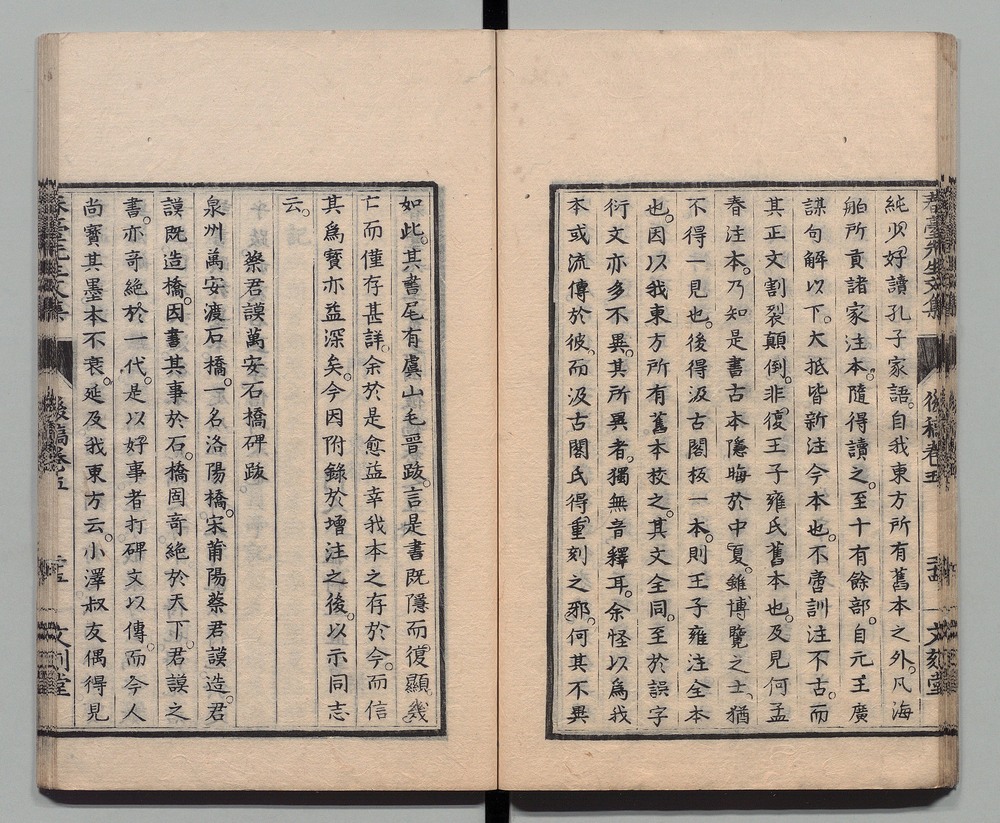 純少好讀孔子家語。自我東方所有舊本之外。凡海
舶所貢諸家注本。隨得讀之。至十有餘部。自元王廣
謀句解以下。大抵皆新注今本也。不啻訓注不古。而
其正文割裂顛倒。非復王子雍氏舊本也。及見何孟
春注本。乃知是書古本隱晦於中夏。雖博覽之士。猶
不得一見也。後得汲古閣板一本。則王子雍注全本
也。因以我東方所有舊本校之。其文全同。至於誤字
衍文亦多不異。其所異者。獨無音釋耳。余怪以爲我
本或流傳於彼。而汲古閣氏得重刻之邪。何其不異
春臺先生文集
後稿卷五
文刻堂
如此。其書尾有虞山毛晉跋。言是書既隱而復顯。幾
亡而僅存甚詳。余於是愈益幸我本之存於今。而信
其爲寶亦益深矣。今因附錄於增注之後。以示同志
云。
蔡君謨萬安石橋碑跋
泉州萬安渡石橋。一名洛陽橋。宋莆陽蔡君謨造。君
謨既造橋。因書其事於石。橋固奇絕於天下。君謨之
書。亦奇絕於一代。是以好事者打碑文以傳。而今人
尚寶其墨本不衰。延及我東方云。小澤叔友偶得見
春臺先生文集
後稿卷五
文刻堂